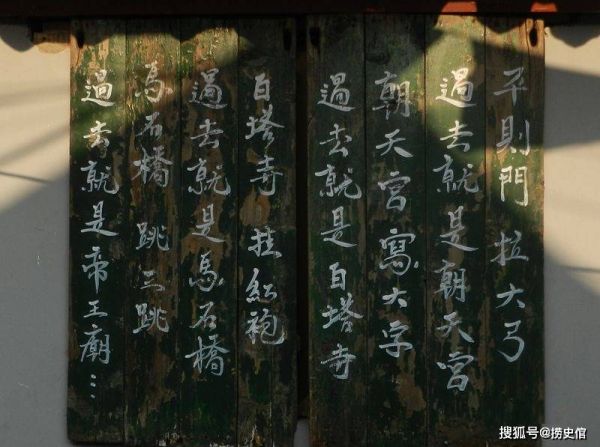 平則門 拉大弓
過去就是朝天宮
朝天宮 寫大字
過去就是白塔寺
白塔寺 挂紅袍
過去就是馬石橋
馬石橋 跳三跳
過去就是帝王廟…
搜狐号@捞史馆